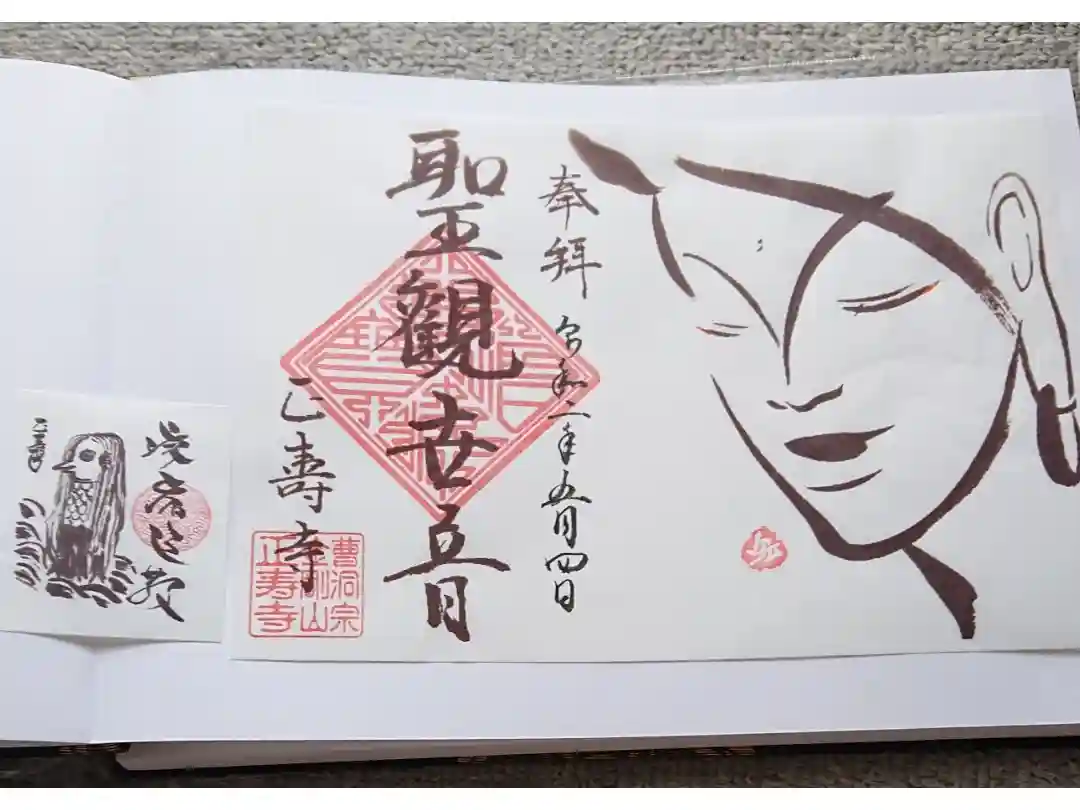 奉拜
令和二年五月四日
聖觀世音
正壽寺
曹洞宗
金剛山
正寿寺
疫病退散